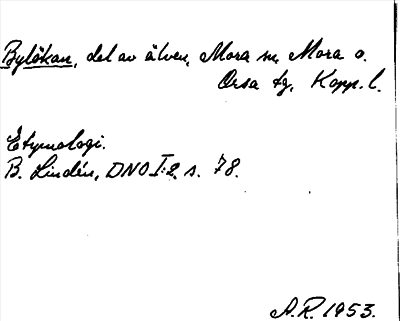 Bylökan, del av älven, Mora sn, Mora o.
Orsa tg, Kopp. l.
Etymologi.
B. Lindén, DNO I:2 s. 78.
A.R. 1953.